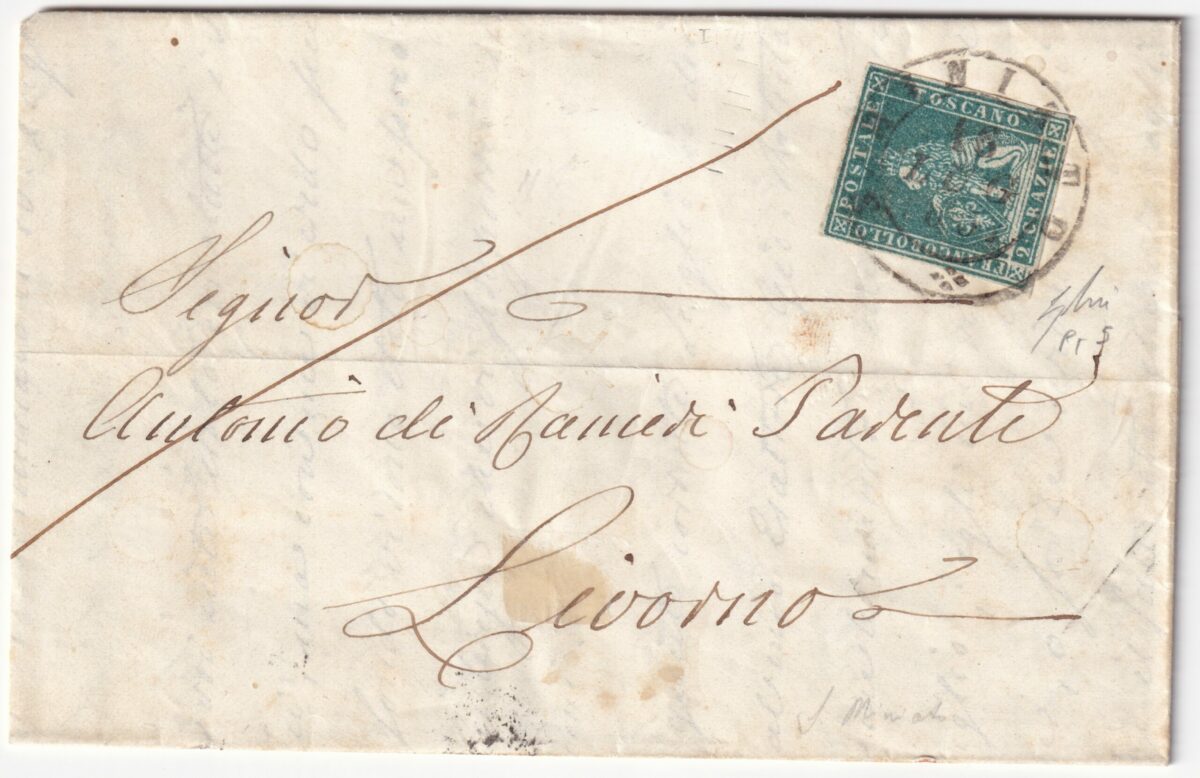 FRANCOBOLLO
POSTALE
TOSCANO
2 CRAZIE
Signor
Antonio di Ranieri Parente
Livorno
S. Miniato